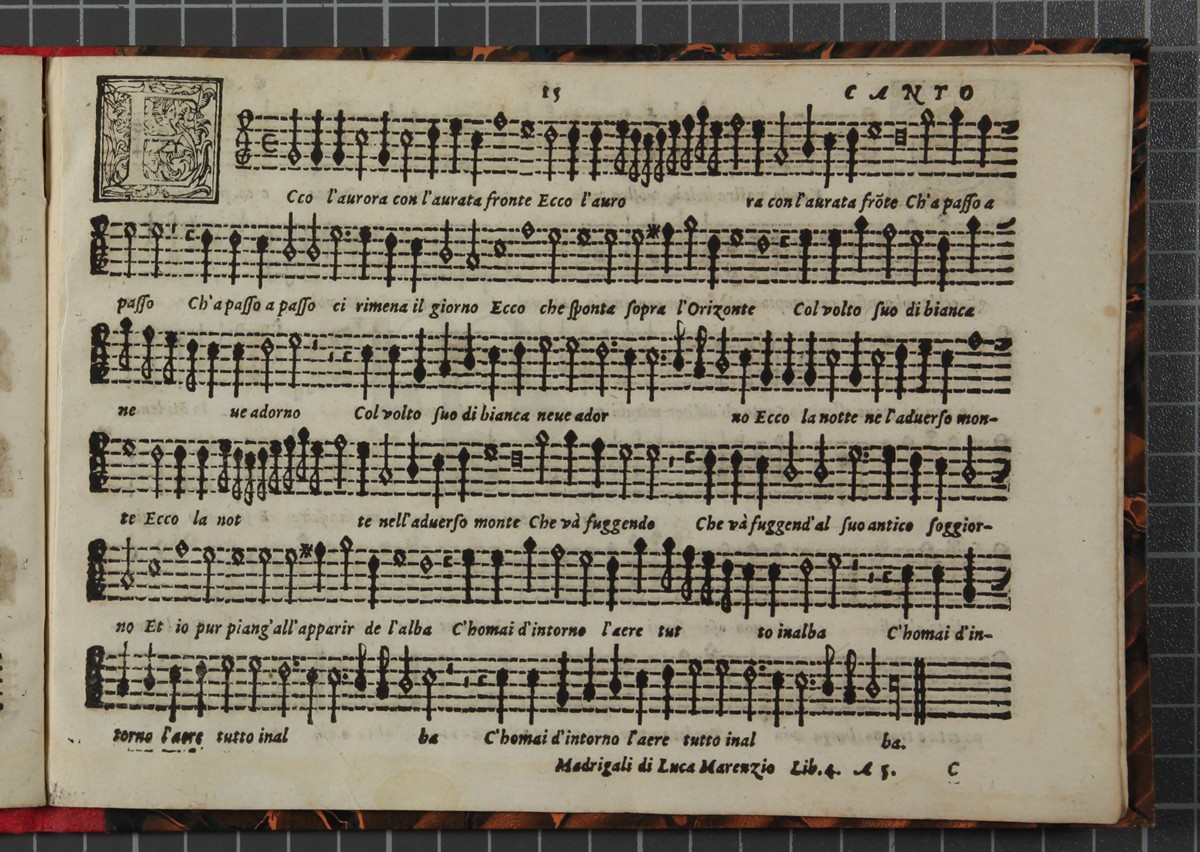 15 CANTO
E
Cco l'aurora con l'aurata fronte Ecco l'auro ra con l'aurata frõte Ch'a passo a
passo Ch'a passo a passo ci rimena il giorno Ecco che sponta sopra l'Orizonte Col volto suo di bianca
ne ue adorno Col volto suo di bianca neue ador no Ecco la notte ne l'aduerso mon-
te Ecco la not te nell'aduerso monte Che và fuggendo Che và fuggend'al suo antico soggior-
no Et io pur piang'all'apparir de l'alba C'homai d'intorno l'aere tut to inalba C'homai d'in-
torno l'aere tutto inal ba C'homai d'intorno l'aere tutto inal ba.
Madrigali di Luca Marenzio Lib.4. A 5. C